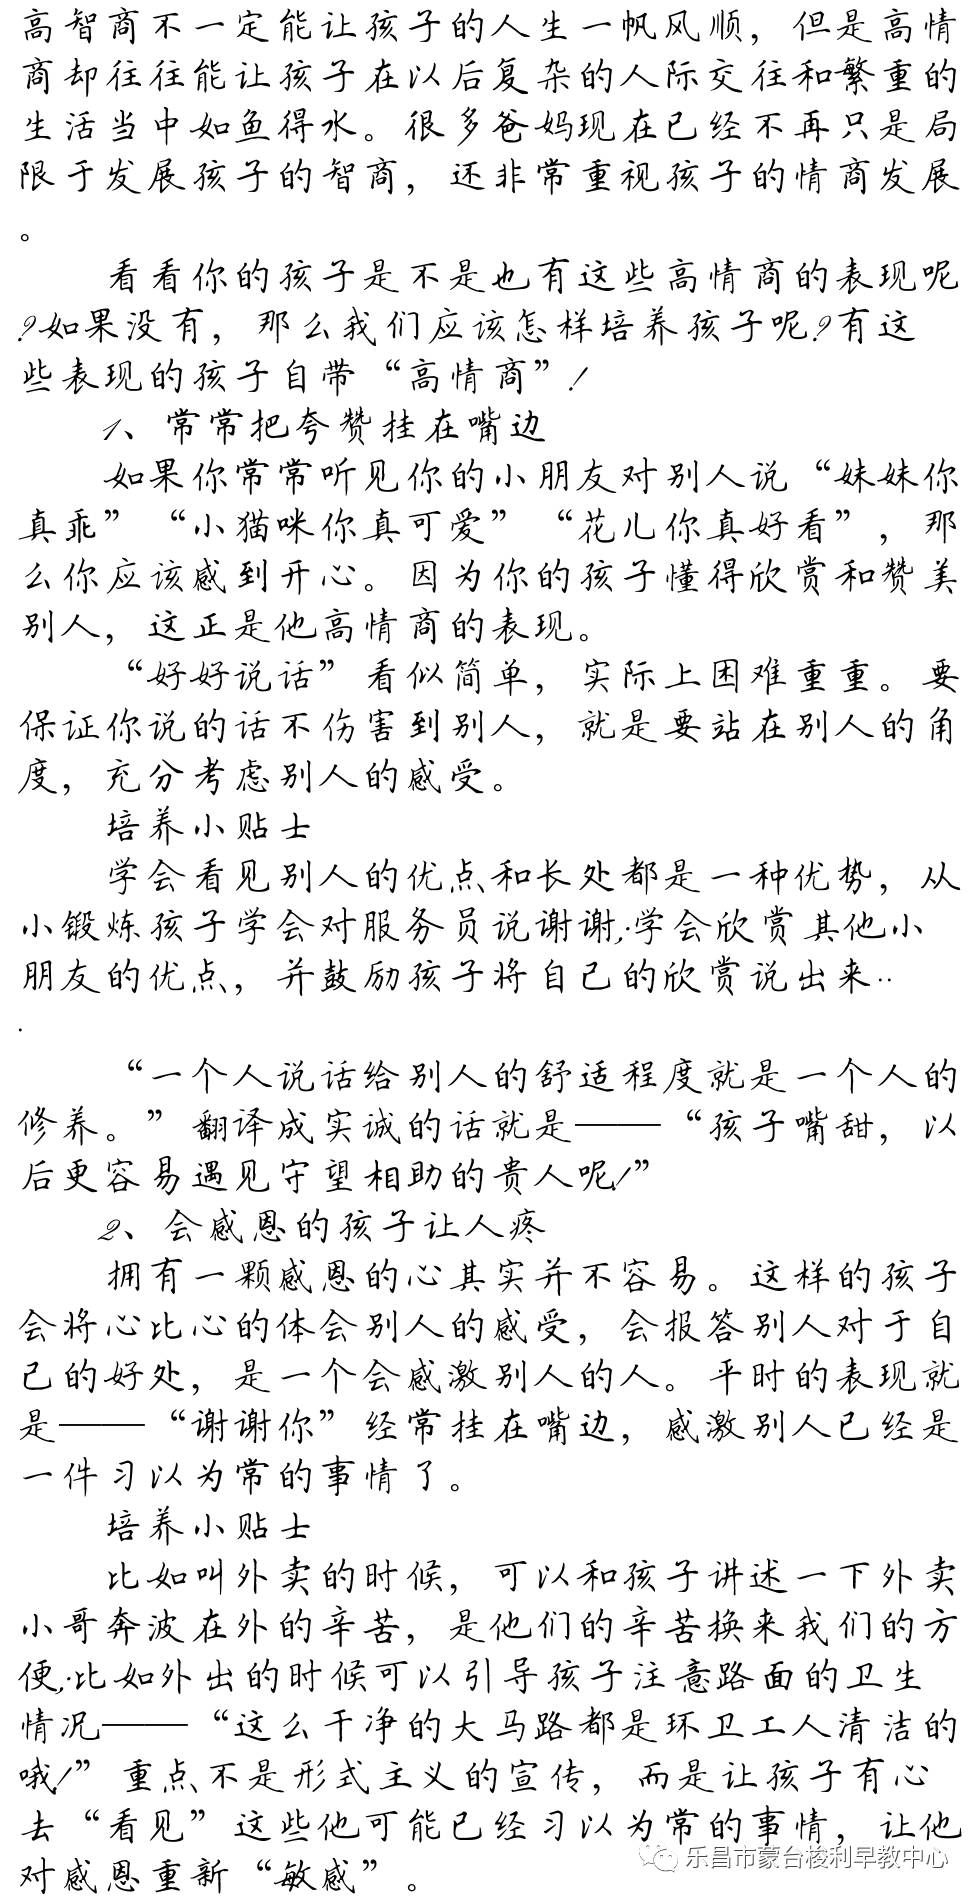 高智商不一定能让孩子的人生一帆风顺，但是高情
商却往往能让孩子在以后复杂的人际交往和繁重的
生活当中如鱼得水。很多爸妈现在已经不再只是局
限于发展孩子的智商，还非常重视孩子的情商发展
。
看看你的孩子是不是也有这些高情商的表现呢
?如果没有，那么我们应该怎样培养孩子呢?有这
些表现的孩子自带“高情商”!
1、常常把夸赞挂在嘴边
如果你常常听见你的小朋友对别人说“妹妹你
真乖”“小猫咪你真可爱”“花儿你真好看”，那
么你应该感到开心。因为你的孩子懂得欣赏和赞美
别人，这正是他高情商的表现。
“好好说话”看似简单，实际上困难重重。要
保证你说的话不伤害到别人，就是要站在别人的角
度，充分考虑别人的感受。
培养小贴士
学会看见别人的优点和长处都是一种优势，从
小锻炼孩子学会对服务员说谢谢;学会欣赏其他小
朋友的优点，并鼓励孩子将自己的欣赏说出来..
.
“一个人说话给别人的舒适程度就是一个人的
修养。”翻译成实诚的话就是——“孩子嘴甜，以
后更容易遇见守望相助的贵人呢!”
2、会感恩的孩子让人疼
拥有一颗感恩的心其实并不容易。这样的孩子
会将心比心的体会别人的感受，会报答别人对于自
己的好处，是一个会感激别人的人。平时的表现就
是——“谢谢你”经常挂在嘴边，感激别人已经是
一件习以为常的事情了。
培养小贴士
比如叫外卖的时候，可以和孩子讲述一下外卖
小哥奔波在外的辛苦，是他们的辛苦换来我们的方
便;比如外出的时候可以引导孩子注意路面的卫生
情况——“这么干净的大马路都是环卫工人清洁的
哦!”重点不是形式主义的宣传，而是让孩子有心
去“看见”这些他可能已经习以为常的事情，让他
对感恩重新“敏感”。
乐昌市蒙台梭利早教中心